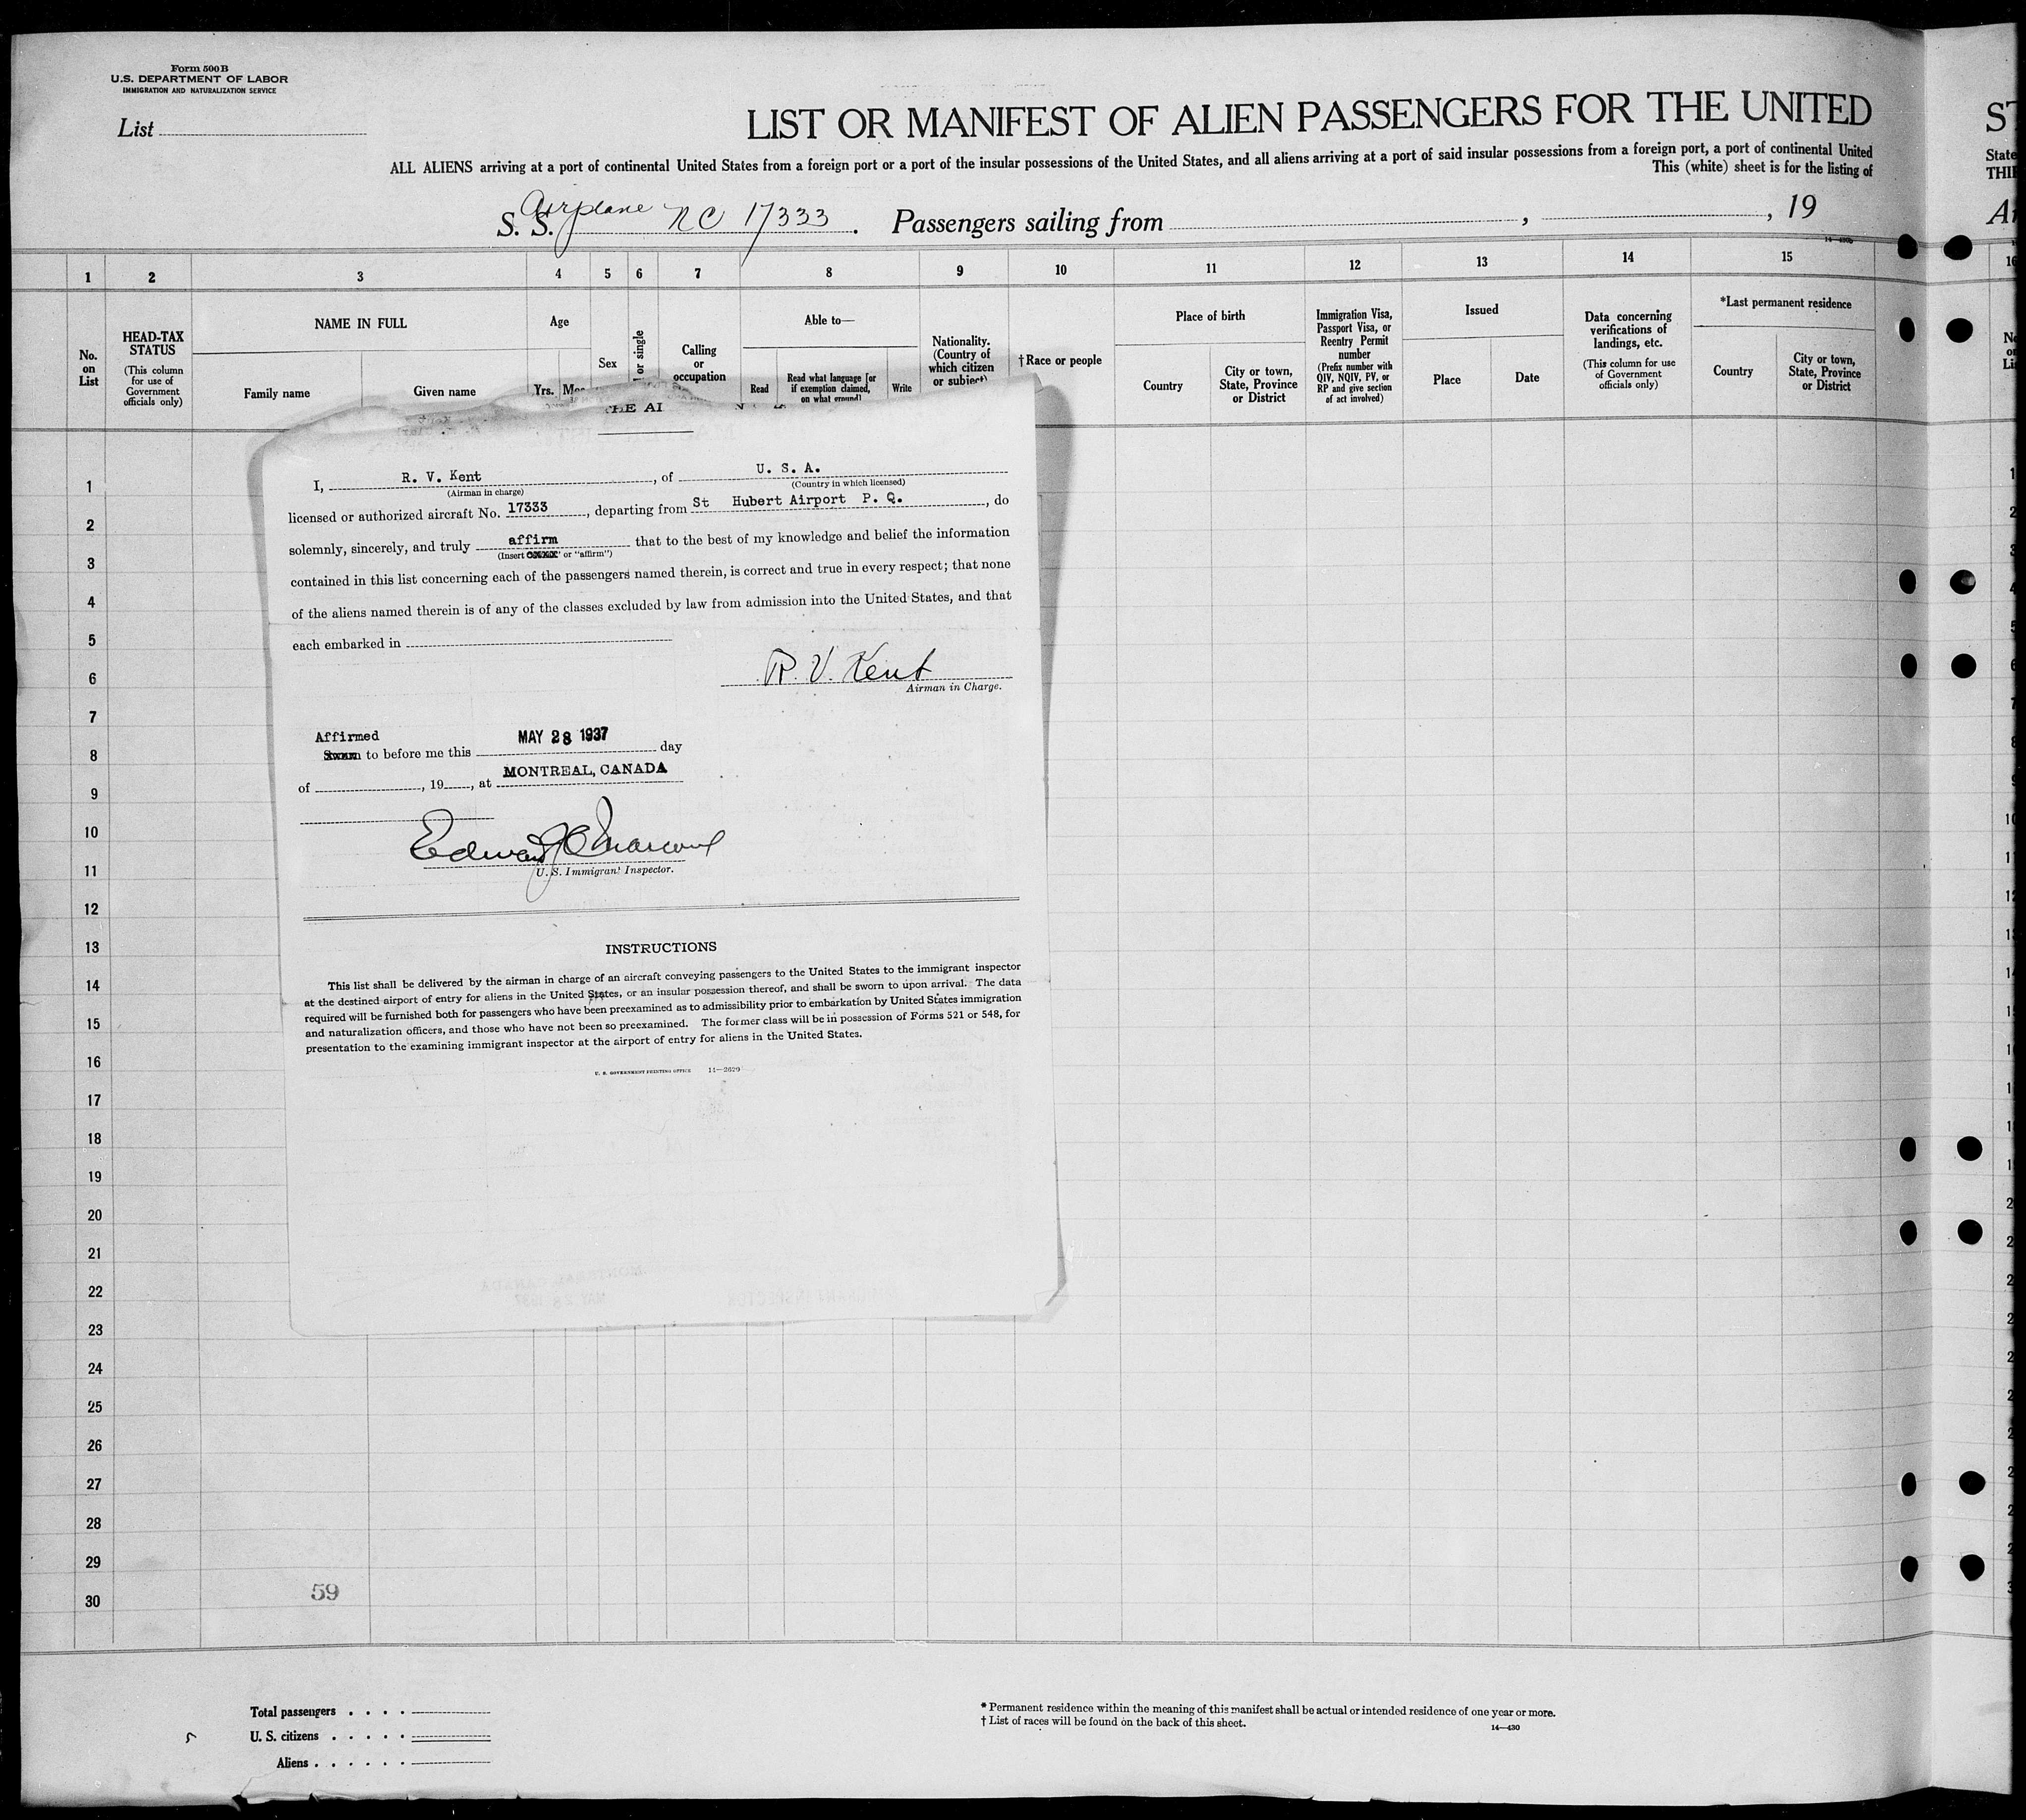 Form 500B
U.S. DEPARTMENT OF LABOR
IMMIGRATION AND NATURALIZATION SERVICE
List
LIST OR MANIFEST OF ALIEN PASSENGERS FOR THE UNITED
ALL ALIENS arriving at a port of continental United States from a foreign port or a port of the insular possessions of the United States, and all aliens arriving at a port of said insular possessions from a foreign port, a port of continental United
This (white) sheet is for the listing of
S. S. Airplane NC 17333. Passengers sailing from , , 19
State
THI
1 2 3 4 5 6 7 8 9 10 11 12 13 14 15
No. on List
HEAD-TAX STATUS
(This column for use of Government officials only)
NAME IN FULL
Family name
Given name
Age
Yrs.
Sex
or single
Calling or occupation
Able to—
Read
Read what language [or if exemption claimed, on what ground]
Write
Nationality. (Country of which citizen or subject)
†Race or people
Place of birth
Country
City or town, State, Province or District
Immigration Visa, Passport Visa, or Reentry Permit number
(Prefix number with QIV, NQIV, PV, or RP and give section of act involved)
Issued
Place
Date
Data concerning verifications of landings, etc.
(This column for use of Government officials only)
*Last permanent residence
Country
City or town, State, Province or District
THE AI
I, R. V. Kent, of U. S. A.
(Airman in charge) (Country in which licensed)
licensed or authorized aircraft No. 17333, departing from St Hubert Airport P. Q., do
solemnly, sincerely, and truly affirm that to the best of my knowledge and belief the information
(Insert or "affirm")
contained in this list concerning each of the passengers named therein, is correct and true in every respect; that none
of the aliens named therein is of any of the classes excluded by law from admission into the United States, and that
each embarked in
R. V. Kent
Airman in Charge.
Affirmed
to before me this MAY 28 1937 day
of , 19 , at MONTREAL, CANADA
Edward
U. S. Immigrant Inspector.
INSTRUCTIONS
This list shall be delivered by the airman in charge of an aircraft conveying passengers to the United States to the immigrant inspector
at the destined airport of entry for aliens in the United States, or an insular possession thereof, and shall be sworn to upon arrival. The data
required will be furnished both for passengers who have been preexamined as to admissibility prior to embarkation by United States immigration
and naturalization officers, and those who have not been so preexamined. The former class will be in possession of Forms 521 or 548, for
presentation to the examining immigrant inspector at the airport of entry for aliens in the United States.
U. S. GOVERNMENT PRINTING OFFICE 14—2629
1
2
3
4
5
6
7
8
9
10
11
12
13
14
15
16
17
18
19
20
21
22
23
24
25
26
27
28
29
30
59
Total passengers . . . .
U. S. citizens . . . . .
Aliens . . . . . .
* Permanent residence within the meaning of this manifest shall be actual or intended residence of one year or more.
† List of races will be found on the back of this sheet.
14—430